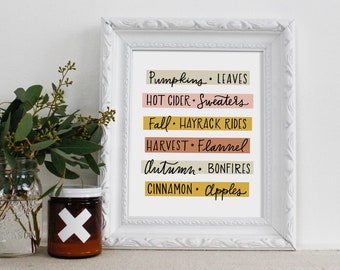 Pumpkins • LEAVES
HOT CIDER • Sweaters
Fall • HAYRACK RIDES
HARVEST • Flannel
Autumn • BONFIRES
CINNAMON • Apples